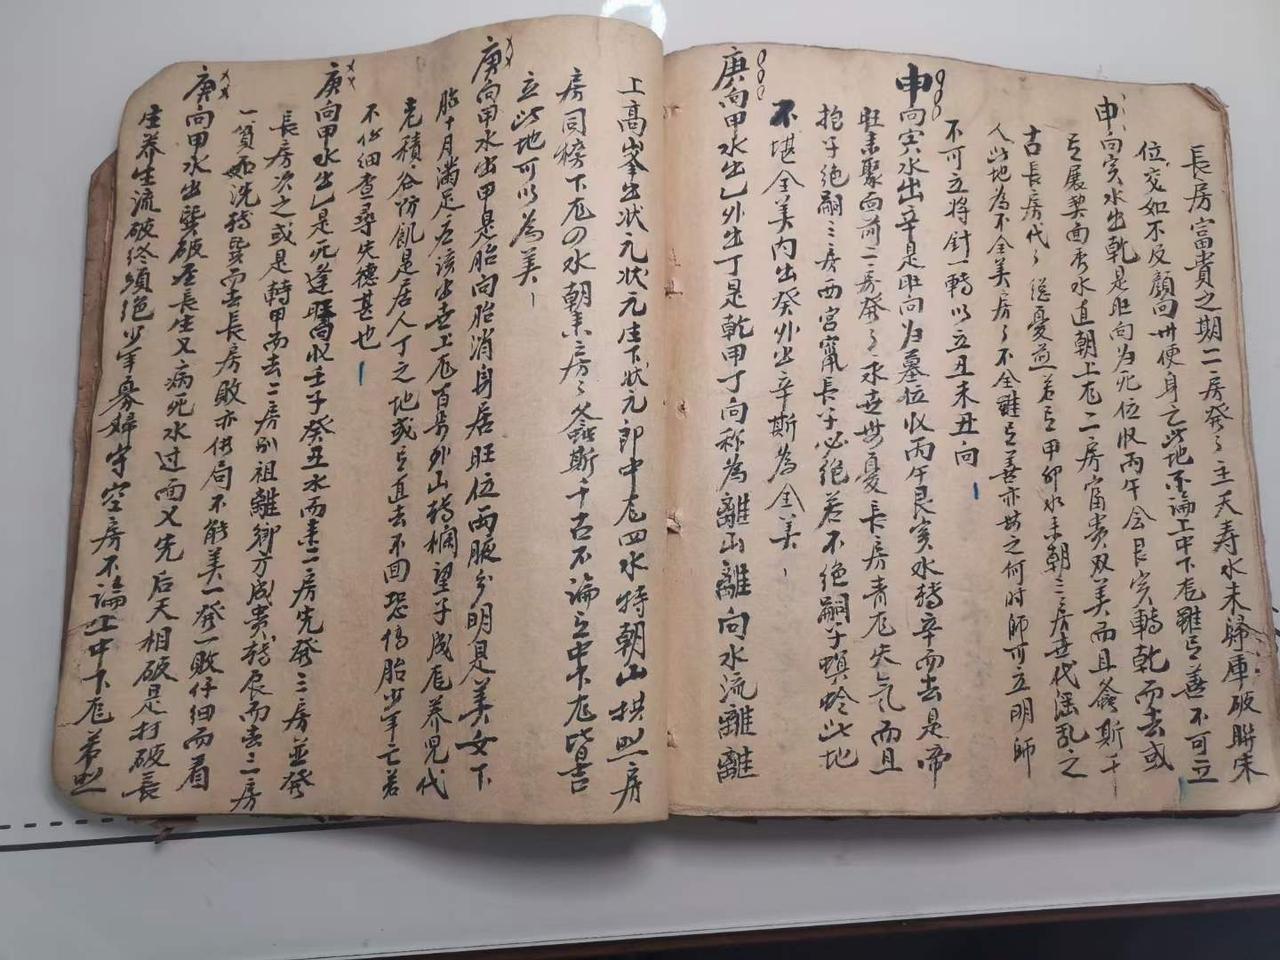 長房富貴之期二房發〻主天寿水未歸庫破聯朱
位交如不反顧向卅便身亡此地不論上中下㡯雖㠯善不可立
申向寅水出乾是旺向為死位收丙午會艮寅轉乾而去或
㠯展契面前水直朝上㡯二房富贵双美而且螽斯千
古長房代〻總憂益若㠯甲卯水来朝三房世代滛乱之
人此地為不全美房〻不全雖㠯善亦毋之何时師可立明師
不可立将針一轉以立丑未丑向
申向寅水出辛是旺向为墓位收丙午艮寅水轉辛而去是帝
旺来聚面前二房發〻永世毋憂長房青㡯失氣而且
抱子绝嗣三房西宫寗長子必绝若不绝嗣子螟蛉此地
不堪全美内出癸外出辛斯為全美
庚向甲水出乙外出丁是乾甲丁向称為離山離向水流離離
上高峯出状元状元生下状元郎中㡯四水特朝山拱照房
房同榜下㡯の水朝来房〻螽斯千古不論㠯中下㡯皆吉
立此地可以為美
庚向甲水出甲是胎向胎消身居旺位两腋分明是美女下
胎十月滿足应该出世上㡯百步外山轉欄望子成㡯养児代
老積谷防飢是居人丁之地或㠯直去不回恐傷胎少年亡若
不仔细查尋失德甚也
庚向甲水出乙是死逢旺向收壬子癸丑水而来二房先發三房並發
長房次之或是轉甲而去二房别祖離鄉方成贵轉辰而去三房
一貧如洗轉巽而去長房敗亦傷局不能美一發一敗仔细而看
庚向甲水出巽破在長生又病死水过面又先后天相破是打破長
生养生流破终須绝少年寡婦守空房不論上中下㡯第照